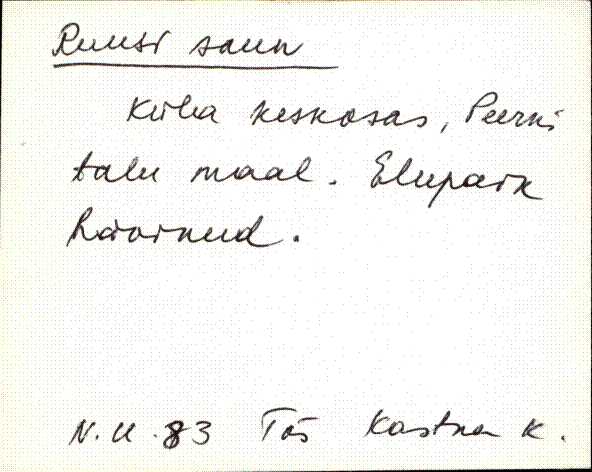 Ruusi saun
Küla keskosas, Peerni
talu maal. Elupaik
hävinud.
N.U. 83 Tõs Kastna k.